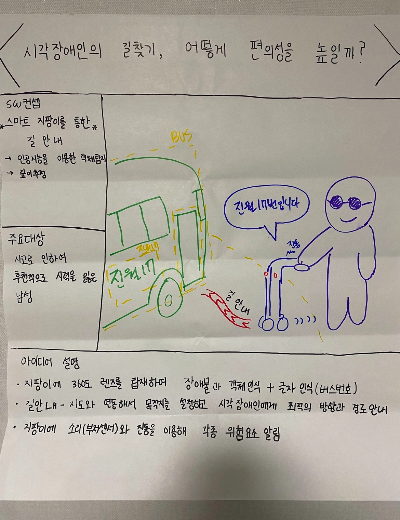 시각장애인의 길찾기, 어떻게 편의성을 높일까?
SW컨셉
*스마트 지팡이를 통한*
길 안내
→ 인공지능을 이용한 객체탐지
→ 깊이추정
주요대상
사고로 인하여
후천적으로 시력을 잃은
남성
BUS
진월17
진월17
진월17번입니다
진동
길안내
아이디어 설명
· 지팡이에 360도 렌즈를 탑재하여 장애물과 객체인식 + 글자 인식(버스번호)
· 길안내 - 지도와 연동해서 목적지를 설정하고 시각장애인에게 최적의 방향과 경로 안내
· 지팡이에 소리(부저센서)와 진동을 이용해 각종 위험요소 알림